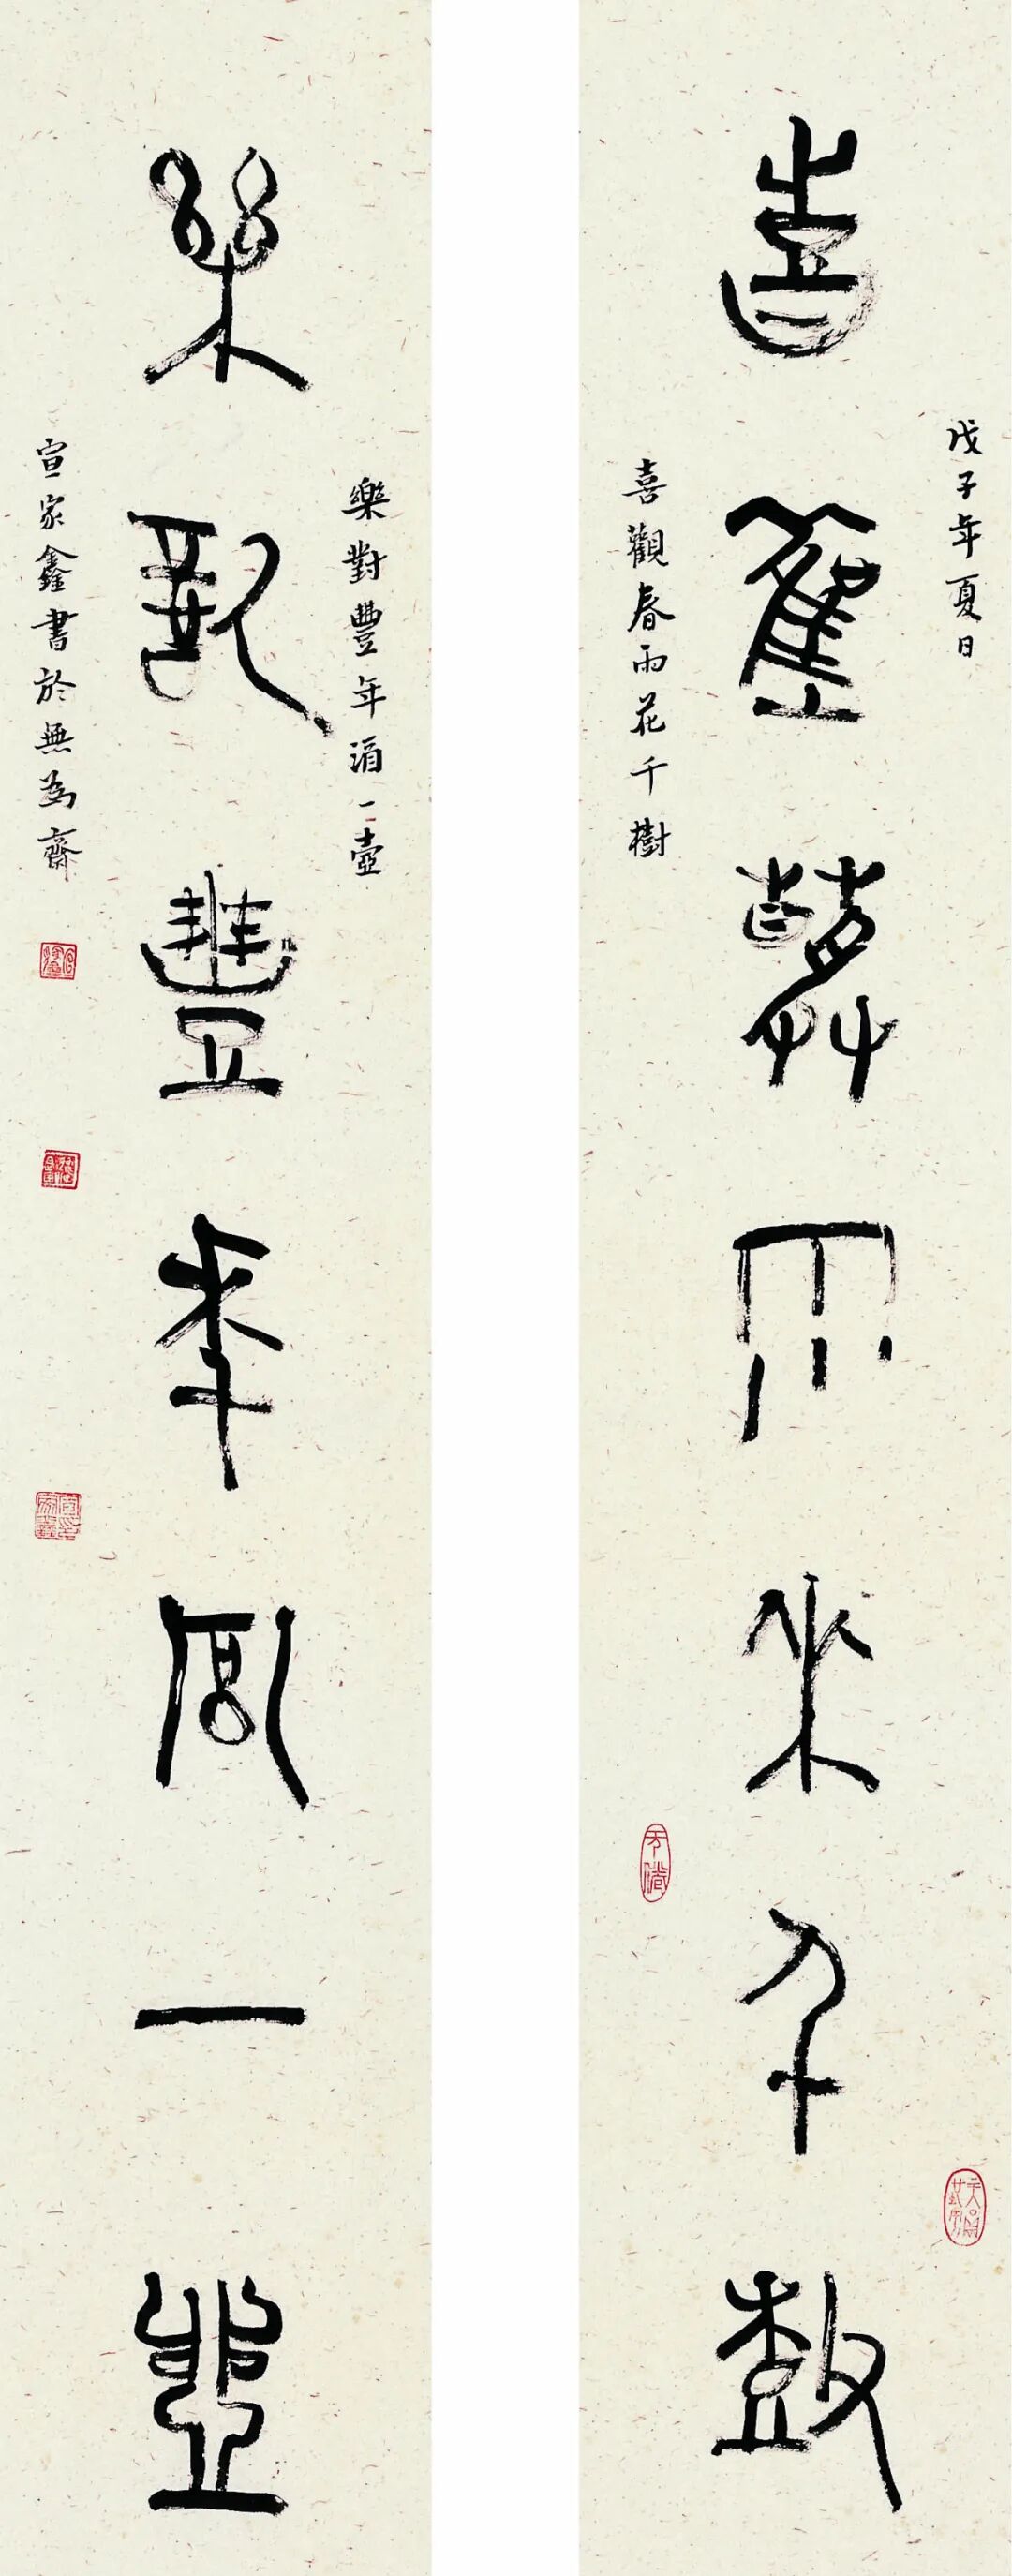 戊子年夏日
喜雚萅雨華千尌
喜觀春雨花千樹
樂對豐年酒一壺
樂對豐年酒一壺
宣家鑫書於無為齋